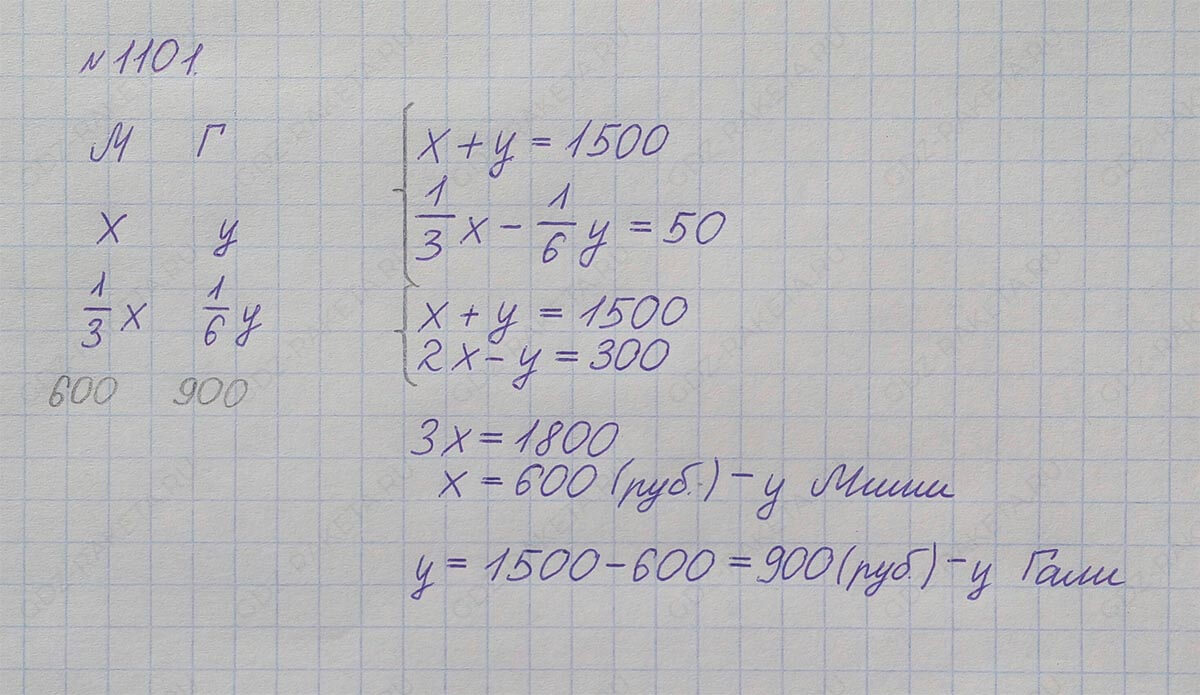 №1101.
М Г
x y
1/3 x 1/6 y
600 900
x + y = 1500
1/3 x - 1/6 y = 50
x + y = 1500
2x - y = 300
3x = 1800
x = 600 (руб.) - у Миши
y = 1500 - 600 = 900 (руб.) - у Гали
GDZ-RAKETA.RU